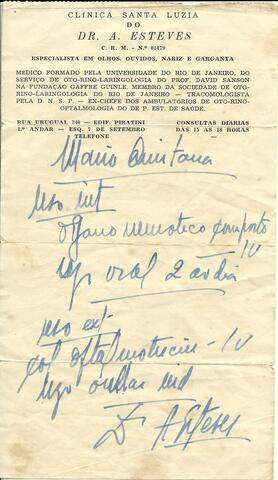 CLÍNICA SANTA LUZIA
DO
DR. A. ESTEVES
C. R. M. - N.º 01479
ESPECIALISTA EM OLHOS, OUVIDOS, NARIZ E GARGANTA
MÉDICO FORMADO PELA UNIVERSIDADE DO RIO DE JANEIRO, DO
SERVIÇO DE OTO-RINO-LARINGOLOGIA DO PROF. DAVID SANSON
NA FUNDAÇÃO GAFFRE GUINLE. MEMBRO DA SOCIEDADE DE OTO-
RINO-LARINGOLOGIA DO RIO DE JANEIRO - TRACOMOLOGISTA
PELA D. N. S P. - EX-CHEFE DOS AMBULATÓRIOS DE OTO-RINO-
OFTALMOLOGIA DO DE P. EST. DE SAÚDE.
RUA URUGUAI 240 - EDIF. PIRATINI
1.º ANDAR - ESQ. 7 DE SETEMBRO
TELEFONE
CONSULTAS DIÁRIAS
DAS 15 AS 18 HORAS
Mario Quintana
uso int
composto
IV
oral 2 ao dia
uso ext
col - IV
uso
Dr A Esteves